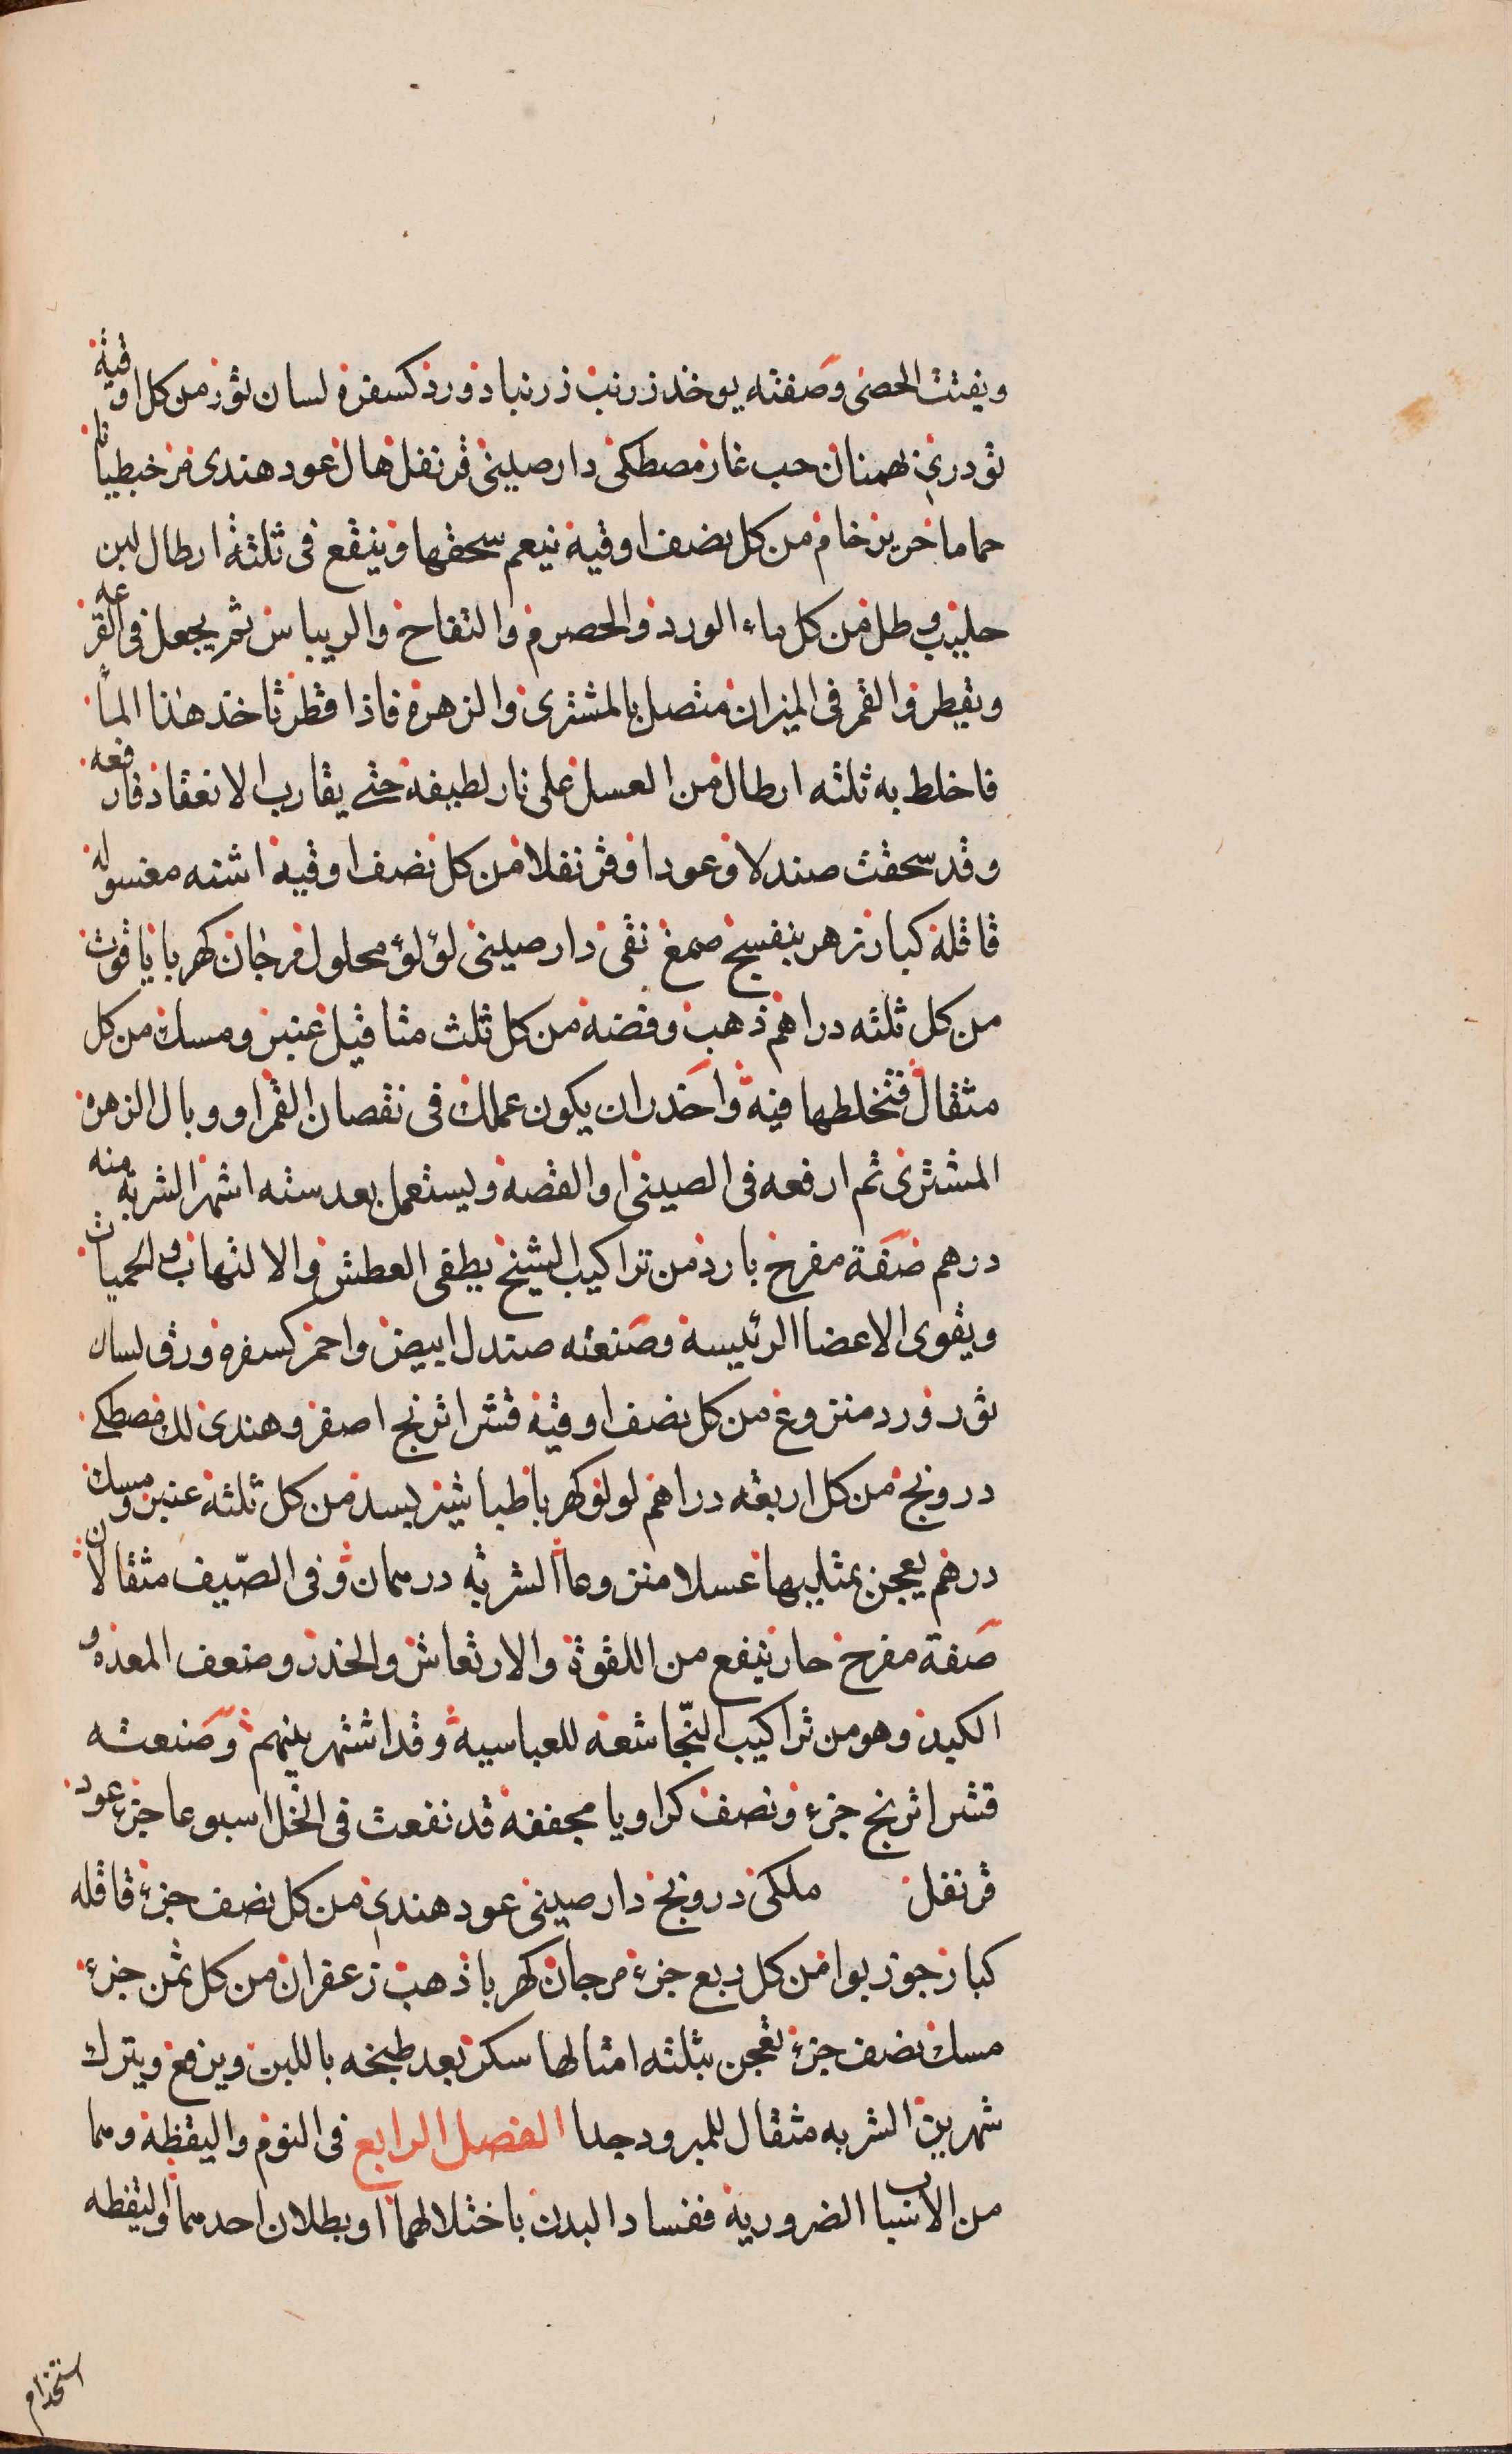 ويفتت الحصى وصفته يوخذ زرنب زرنباد ورد كسفره لسان ثور من كل اوقية
تودري بهمنان حب غار مصطكى دار صيني قرنفل هال عود هندى من خبطيانا
حماما خرير خام من كل نصف اوقية ينعم سحقها وينقع فى ثلثة ارطال لبن
حليب ورطل من كل ماء الورد والحصرم والتفاح والريباس ثم يجعل فى القرعه
ويقطر والقمر فى الميزان متصل بالمشترى والزهرة فاذا قطر تاخذ هذا المآ
فاخلط به ثلثه ارطال من العسل على نار لطيفة حتى يقارب الانعقاد فارفعه
وقد سحقت صندلا وعودا وقرنفلا من كل نصف اوقية اشنه مغسوله
قاقلة كبار زهر بنفسج صمغ نقى دار صينى لؤلؤ محلول مرجان كهربا ياقوت
من كل ثلثه دراهم ذهب وفضه من كل ثلث مثاقيل عنبر ومسك من كل
مثقال فتخلطها فيه واحذر ان يكون عملك فى نقصان القمر او وبال الزهره
المشترى ثم ارفعه فى الصينى او الفضه ويستعمل بعد سته اشهر الشربة منه
درهم صفة مفرح بارد من تراكيب الشيخ يطفى العطش والالتهاب والحميات
ويقوى الاعضا الرئيسة وصنعته صندل ابيض واحمر كسفره ورق لسان
ثور ورد منزوع من كل نصف اوقية قشر اترنج اصفر وهندى لك مصطكى
درونج من كل اربعه دراهم لولو كهربا طباشير بسد من كل ثلثه عنبر ومسك
درهم يعجن بمثليها عسلا منزوعا الشربه درهمان وفى الصّيف مثقالان
صفة مفرح حار ينفع من اللقوة والارتعاش والخدر وضعف المعده و
الكبد وهو من تراكيب النّجاشعه للعباسيه وقد اشتهر بينهم وصنعته
قشر اترنج جزء ونصف كراويا مجففه قد نقعت فى الخل اسبوعا جزء عود
قرنفل ملكى درونج دار صينى عود هندى من كل نصف جزء قاقله
كبار جوز بوا من كل ربع جزء مرجان كهربا ذهب زعفران من كل ثمن جزء
مسك نصف جزء تعجن بثلثه امثالها سكر بعد طبخه باللبن ويرفع ويترك
شهرين الشربه مثقال للمبرود جدا الفصل الرابع فى النوم واليقظة وهما
من الاسباب الضرورية ففساد البدن باختلالهما او بطلان احدهما واليقظه
استخدام